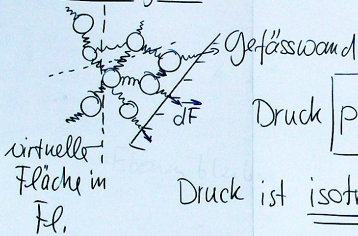 Gefässwand
dF
Druck p
virtuelle
Fläche in
Fl.
Druck ist